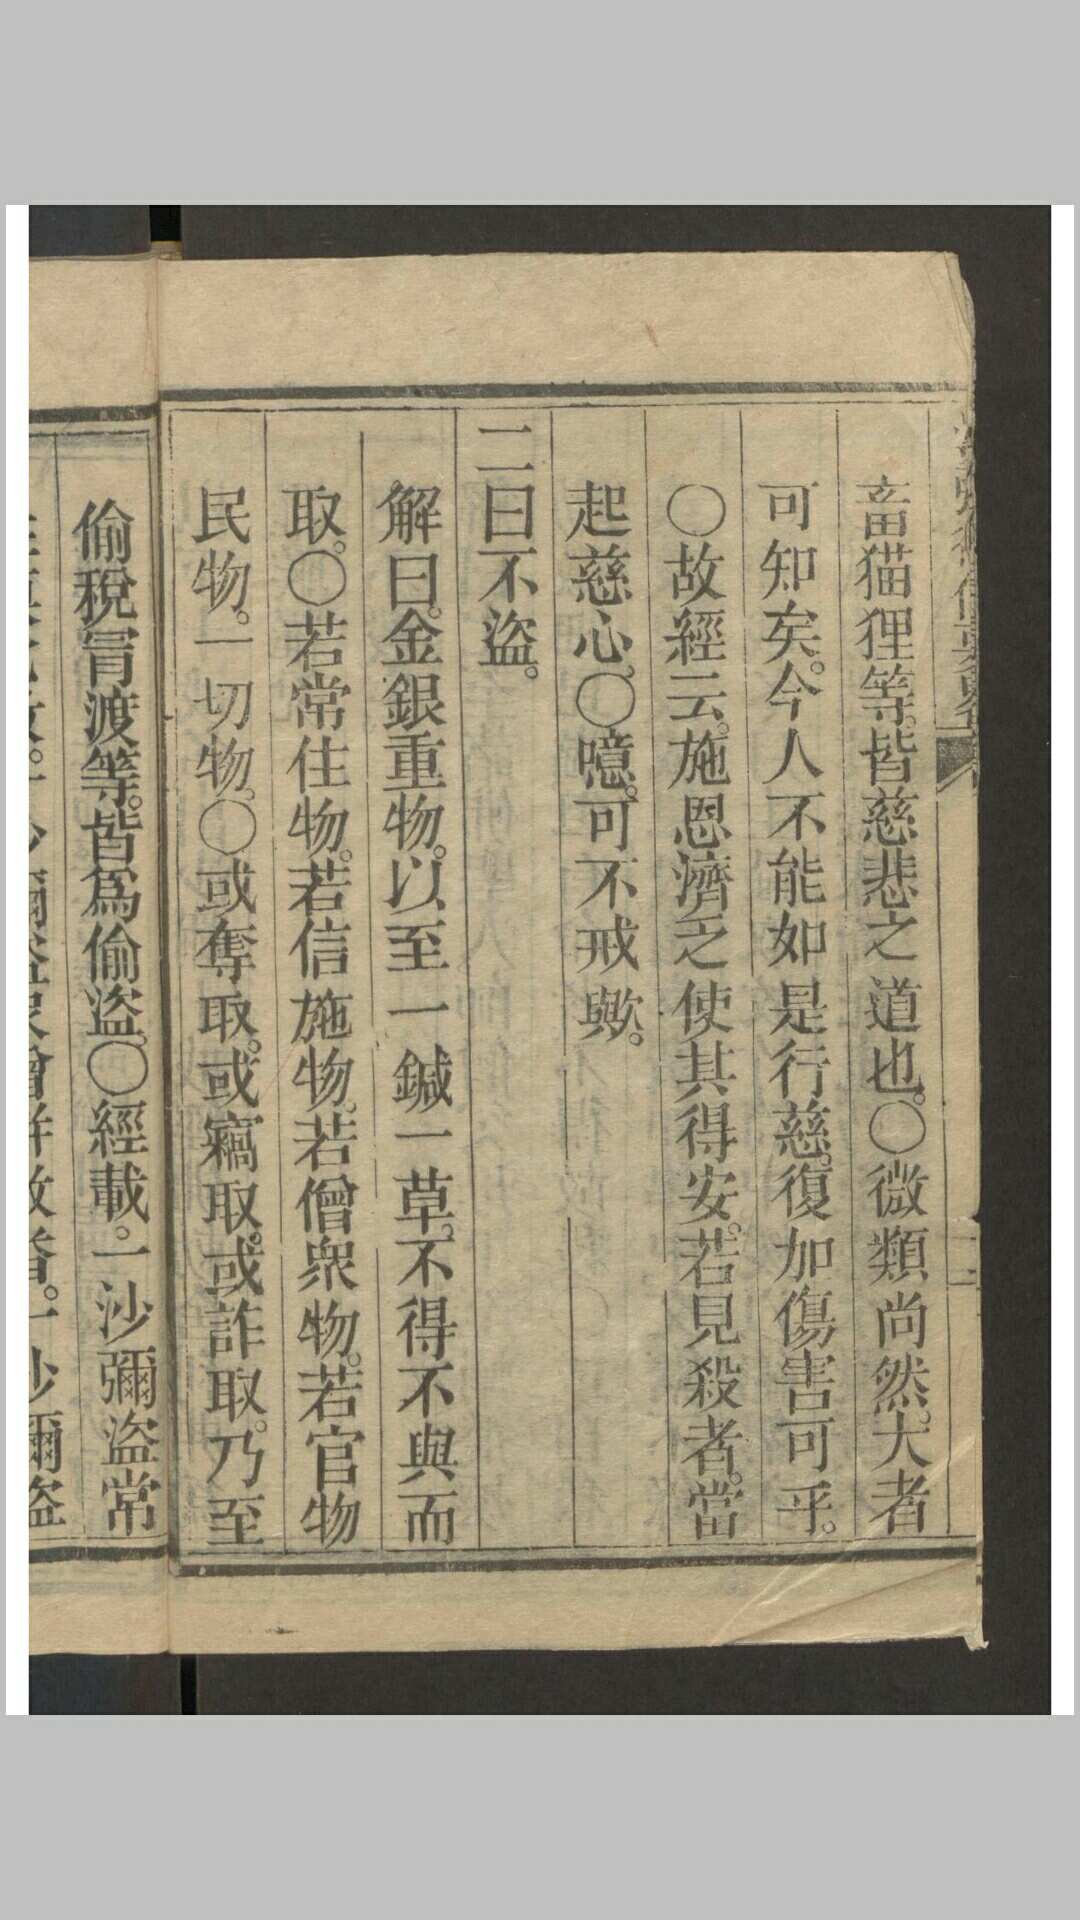 畜猫狸等。皆慈悲之道也。〇微類尚然。大者
可知矣。今人不能如是行慈。復加傷害可乎。
〇故經云。施恩濟乏。使其得安。若見殺者。當
起慈心。〇噫。可不戒歟。
二曰不盜。
解曰。金銀重物。以至一鍼一草。不得不與而
取。〇若常住物。若信施物。若僧眾物。若官物
民物。一切物。〇或奪取。或竊取。或詐取。乃至
偷稅冐渡等。皆為偷盜。〇經載。一沙彌盜常